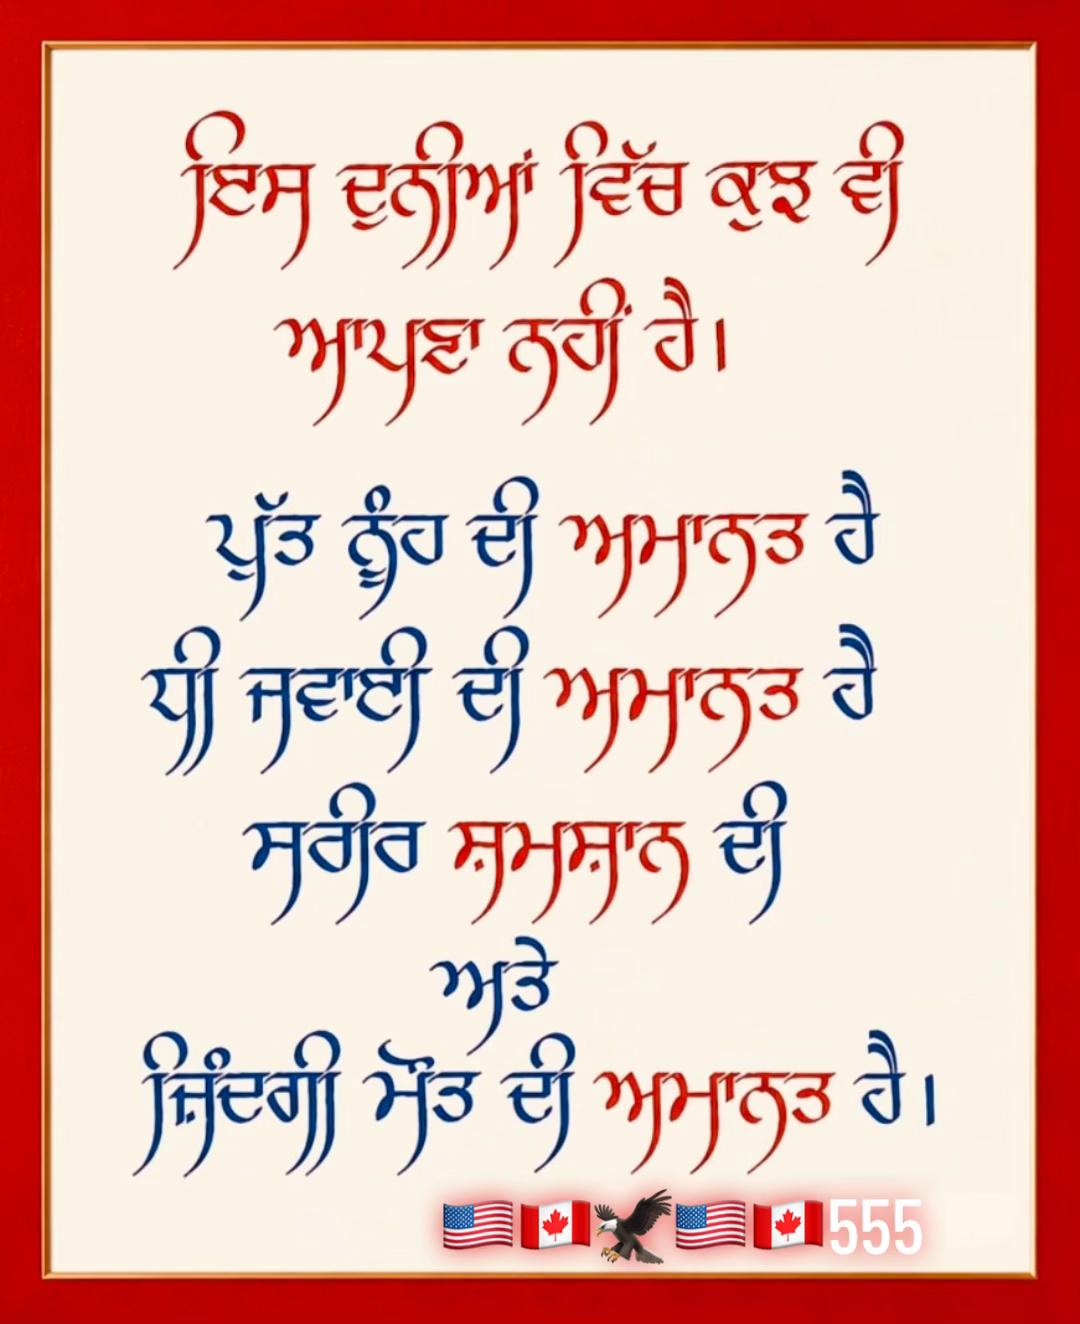 ਇਸ ਦੁਨੀਆਂ ਵਿੱਚ ਕੁਝ ਵੀ
ਆਪਣਾ ਨਹੀਂ ਹੈ।
ਪੁੱਤ ਨੂੰਹ ਦੀ ਅਮਾਨਤ ਹੈ
ਧੀ ਜਵਾਈ ਦੀ ਅਮਾਨਤ ਹੈ
ਸਰੀਰ ਸ਼ਮਸ਼ਾਨ ਦੀ
ਅਤੇ
ਜ਼ਿੰਦਗੀ ਮੌਤ ਦੀ ਅਮਾਨਤ ਹੈ।
🇺🇸🇨🇦🦅🇺🇸🇨🇦555